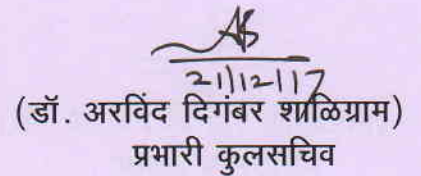 21/12/17
(डॉ. अरविंद दिगंबर शाळिग्राम)
प्रभारी कुलसचिव